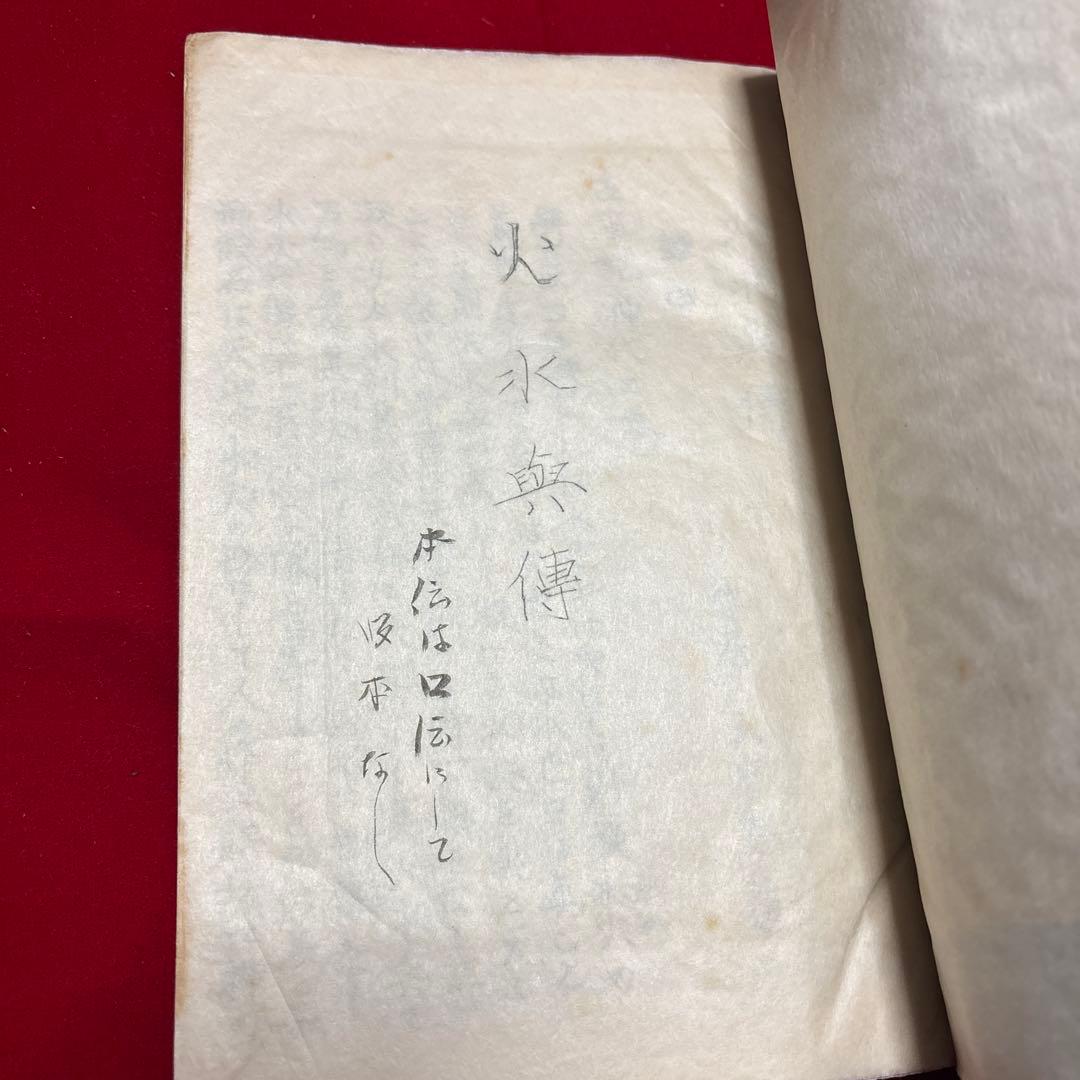 火水與傳
本伝は口伝にして
版本なし